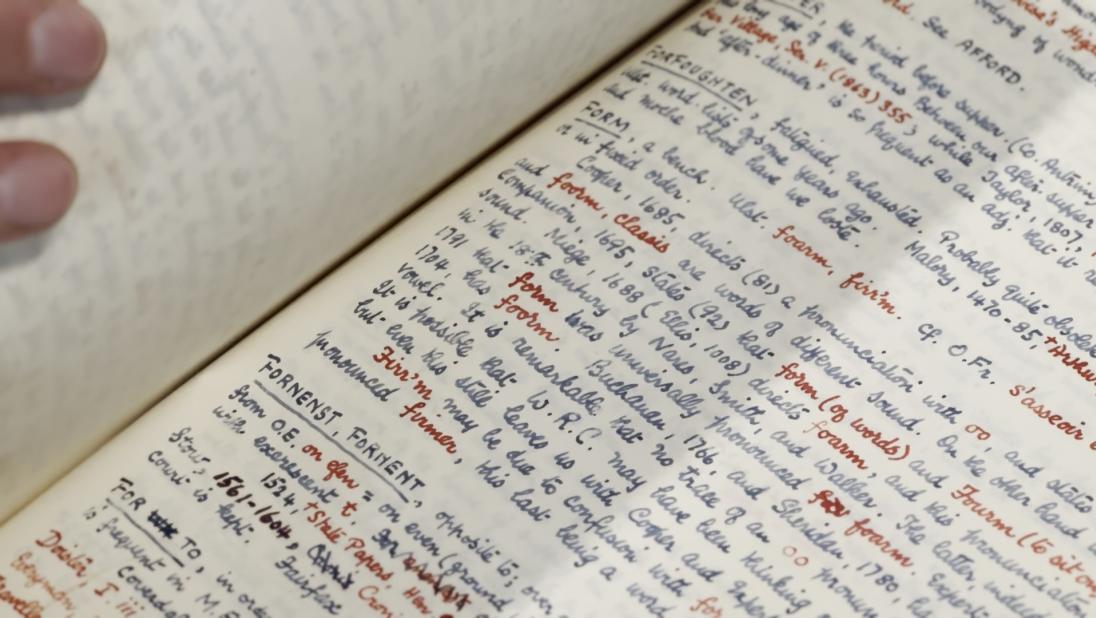 See AFFORD.
the period before supper (Co. Antrim
of three hours between our after supper
Village, Ser. V. (1863) 355; while Taylor, 1807,
and 'after-dinner' is so frequent as an adj. that it
FORFOUGHTEN, fatigued, exhausted. Probably quite obsolete
word-lists of some years ago. Malory, 1470-85,
blood have we loste.
FORM, a bench. Ulst. foarm, firr'm. Cf. O.Fr. s'asseoir
is in fixed order.
Cooper, 1685, directs (81) a pronunciation with oo, and states
and foorm, classis are words of different sound. On the other hand
Companion, 1695, states (92) that form (of words) and Fourm (to sit on
sound. Miege, 1688 (Ellis, 1008) directs foarm, and this pronunciation
in the 18th century by Nares, Smith, and Walker. The latter,
1791 that form was universally pronounced foarm.
1704, has foorm. Buchanan, 1766, and Sheridan, 1780,
vowel. It is remarkable that no trace of an oo
It is possible that W.R.C. may have been thinking
but even this still leaves us with Cooper and
Firr'm may be due to confusion with for
pronounced firmer, this last being a word
FORNENST, FORNENT, opposite to; over
from O.E. on efen = on even (ground
with excrescent t.
1524, +State Papers Hen.
Stow, 1561-1604, Fairfax
Court is kept.
FOR TO, in
is frequent in M.E
I. iii